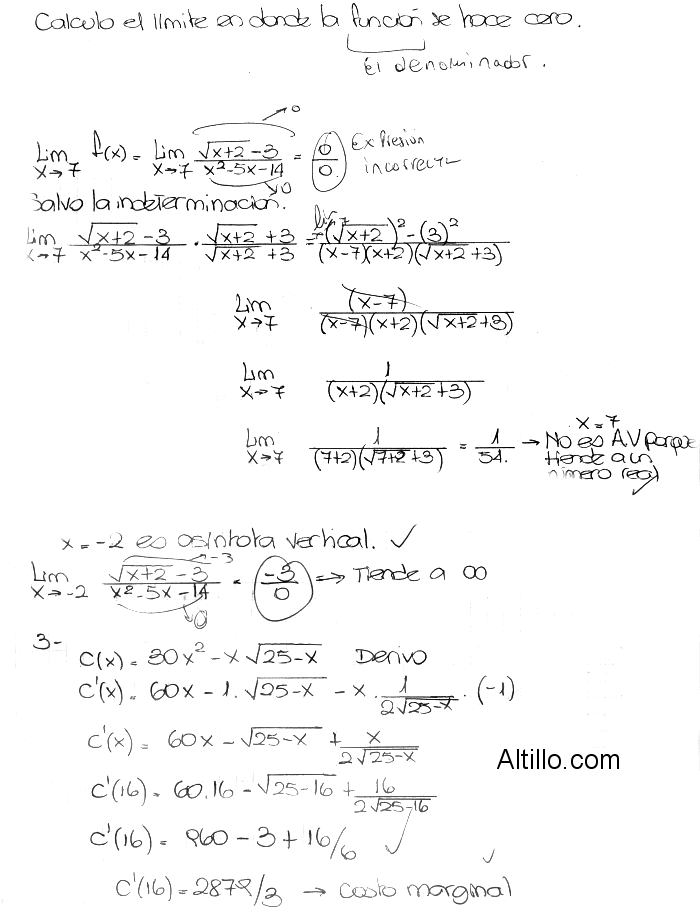 Calculo el límite en donde la función se hace cero.
El denominador.
Lim x→7 f(x) = Lim x→7 (√(x+2) - 3)/(x² - 5x - 14) = 0/0 Expresión incorrecta
→0
→0
Salvo la indeterminación.
Lim x→7 (√(x+2) - 3)/(x² - 5x - 14) · (√(x+2) + 3)/(√(x+2) + 3) = Lim x→7 ((√(x+2))² - (3)²)/((x-7)(x+2)(√(x+2) + 3))
Lim x→7 (x-7)/((x-7)(x+2)(√(x+2) + 3))
Lim x→7 1/((x+2)(√(x+2) + 3))
Lim x→7 1/((7+2)(√(7+2) + 3)) = 1/54. → x = 7 No es A.V porque tiende a un número real ✓
x = -2 es asíntota vertical. ✓
Lim x→-2 (√(x+2) - 3)/(x² - 5x - 14) = -3/0 ⇒ Tiende a ∞
→-3
→0
3- C(x) = 30x² - x√(25-x) Derivo
C'(x) = 60x - 1.√(25-x) - x . 1/(2√(25-x)) . (-1)
C'(x) = 60x - √(25-x) + x/(2√(25-x))
Altillo.com
C'(16) = 60.16 - √(25-16) + 16/(2√(25-16))
C'(16) = 960 - 3 + 16/6 ✓
C'(16) = 2879/3 → Costo marginal ✓